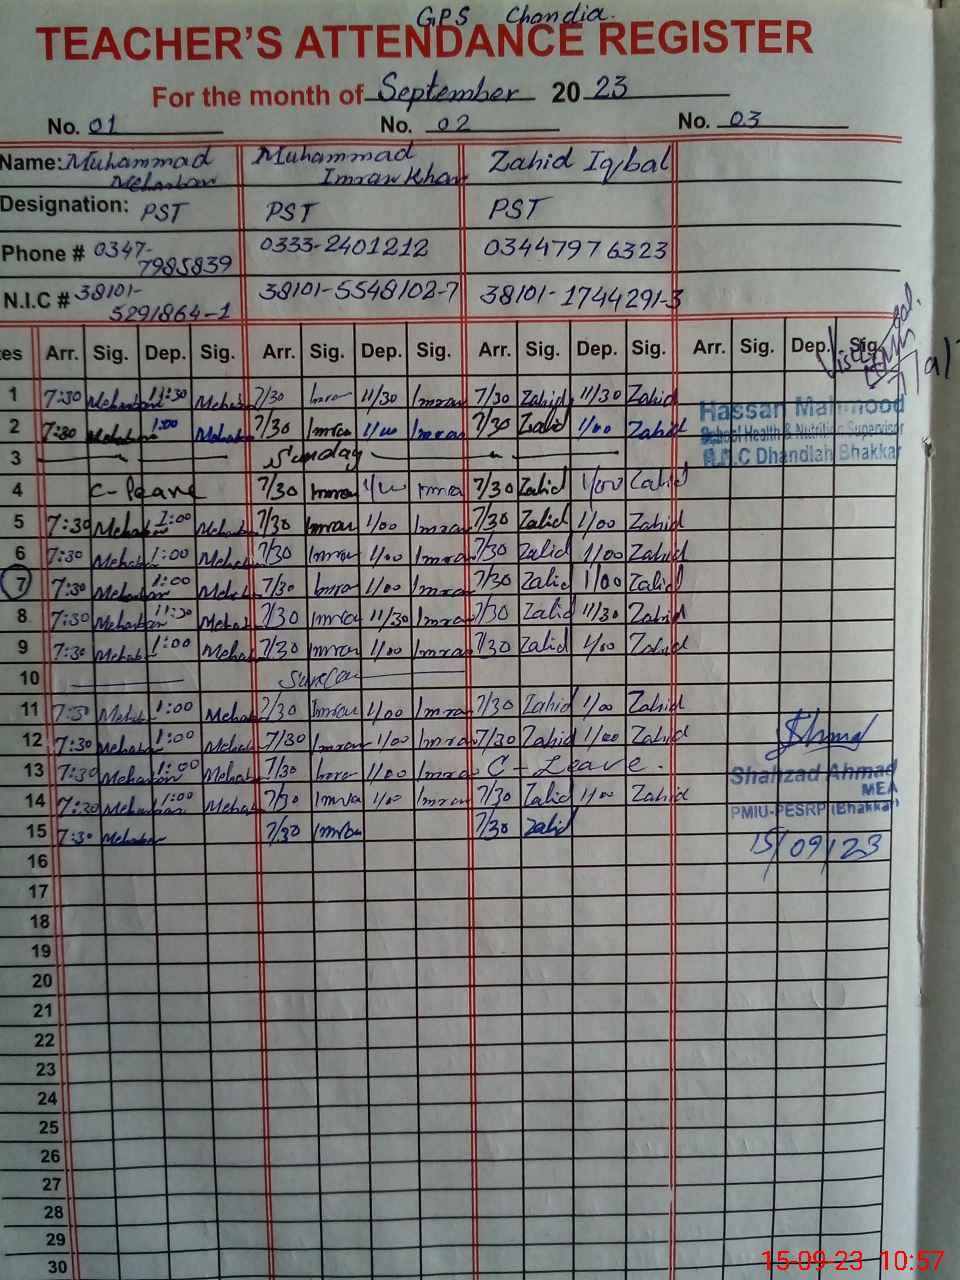 GPS Chandia.
TEACHER'S ATTENDANCE REGISTER
For the month of September 20 23
No. 01 No. 02 No. 03
Name: Muhammad Meharban Muhammad Imran Khan Zahid Iqbal
Designation: PST PST PST
Phone # 0347-7985839 0333-2401212 03447976323
N.I.C # 38101-5291864-1 38101-5548102-7 38101-1744291-3
tes Arr. Sig. Dep. Sig. Arr. Sig. Dep. Sig. Arr. Sig. Dep. Sig. Arr. Sig. Dep. Sig.
1 7:30 Meharban 11:30 Meharban 7/30 Imran 11/30 Imran 7/30 Zahid 11/30 Zahid
Hassan Mahmood
2 7:30 Meharban 1:00 Meharban 7/30 Imran 1/00 Imran 7/30 Zahid 1/00 Zahid
School Health & Nutrition Supervisor
3 Sunday
Dhandlah Bhakkar
4 C-leave 7/30 Imran 1/00 Imran 7/30 Zahid 1/00 Zahid
5 7:30 Meharban 1:00 Meharban 7/30 Imran 1/00 Imran 7/30 Zahid 1/00 Zahid
6 7:30 Meharban 1:00 Meharban 7/30 Imran 1/00 Imran 7/30 Zahid 1/00 Zahid
7 7:30 Meharban 1:00 Meharban 7/30 Imran 1/00 Imran 7/30 Zahid 1/00 Zahid
8 7:30 Meharban 11:30 Meharban 7/30 Imran 11/30 Imran 7/30 Zahid 11/30 Zahid
9 7:30 Meharban 1:00 Meharban 7/30 Imran 1/00 Imran 7/30 Zahid 1/00 Zahid
10 Sunday
11 7:30 Meharban 1:00 Meharban 7/30 Imran 1/00 Imran 7/30 Zahid 1/00 Zahid
12 7:30 Meharban 1:00 Meharban 7/30 Imran 1/00 Imran 7/30 Zahid 1/00 Zahid
13 7:30 Meharban 1:00 Meharban 7/30 Imran 1/00 Imran C-Leave.
Shahzad Ahmad
MEA
14 7:30 Meharban 1:00 Meharban 7/30 Imran 1/00 Imran 7/30 Zahid 1/00 Zahid
PMIU-PESRP (Bhakkar)
15 7:30 Meharban 7/30 Imran 7/30 Zahid
15/09/23
16
17
18
19
20
21
22
23
24
25
26
27
28
29
30
15-09-23 10:57